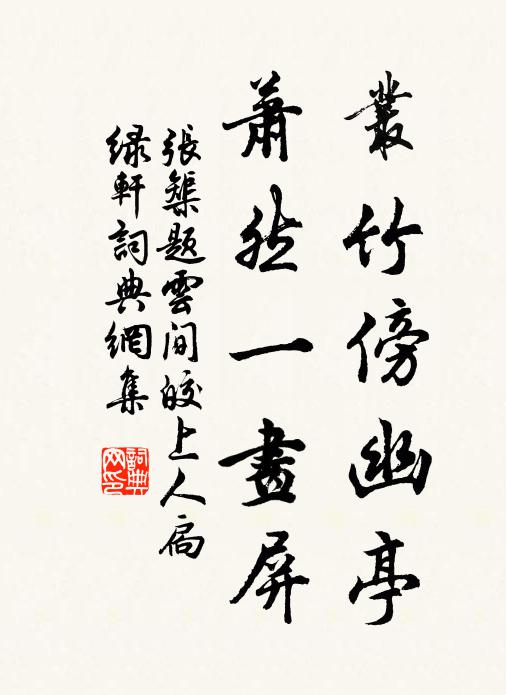 叢竹傍幽亭
蕭然一畫屏
張榘題雲間皎上人扃
緑軒詞典網集
詞典网印